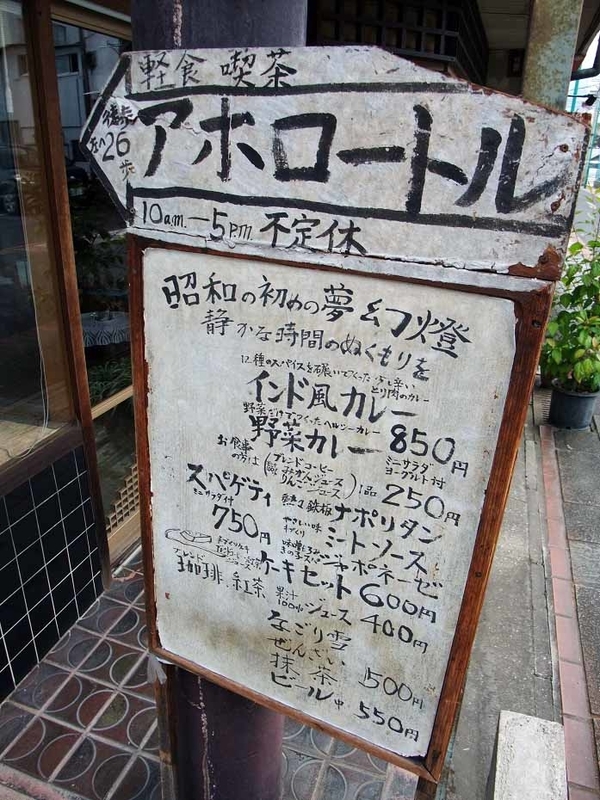 軽食 喫茶
アホロートル
左へ26歩
10a.m.—5p.m. 不定休
昭和の初めの夢幻燈
静かな時間のぬくもりを
12種のスパイスを
とり肉のカレー
インド風カレー
野菜だけでつくったヘルシーカレー
野菜カレー 850円
ミニサラダ ヨーグルト付
お食事の方は
ブレンドコーヒー
みかんジュース
りんごジュース
1品 250円
スパゲティ
ミニサラダ付
750円
熱々鉄板 ナポリタン
やさしい味 ミートソース
ジャポネーゼ
ケーキセット 600円
ブレンド
珈琲・紅茶 果汁100% ジュース 400円
なごり雪
ぜんざい
抹茶 500円
ビール 中 550円